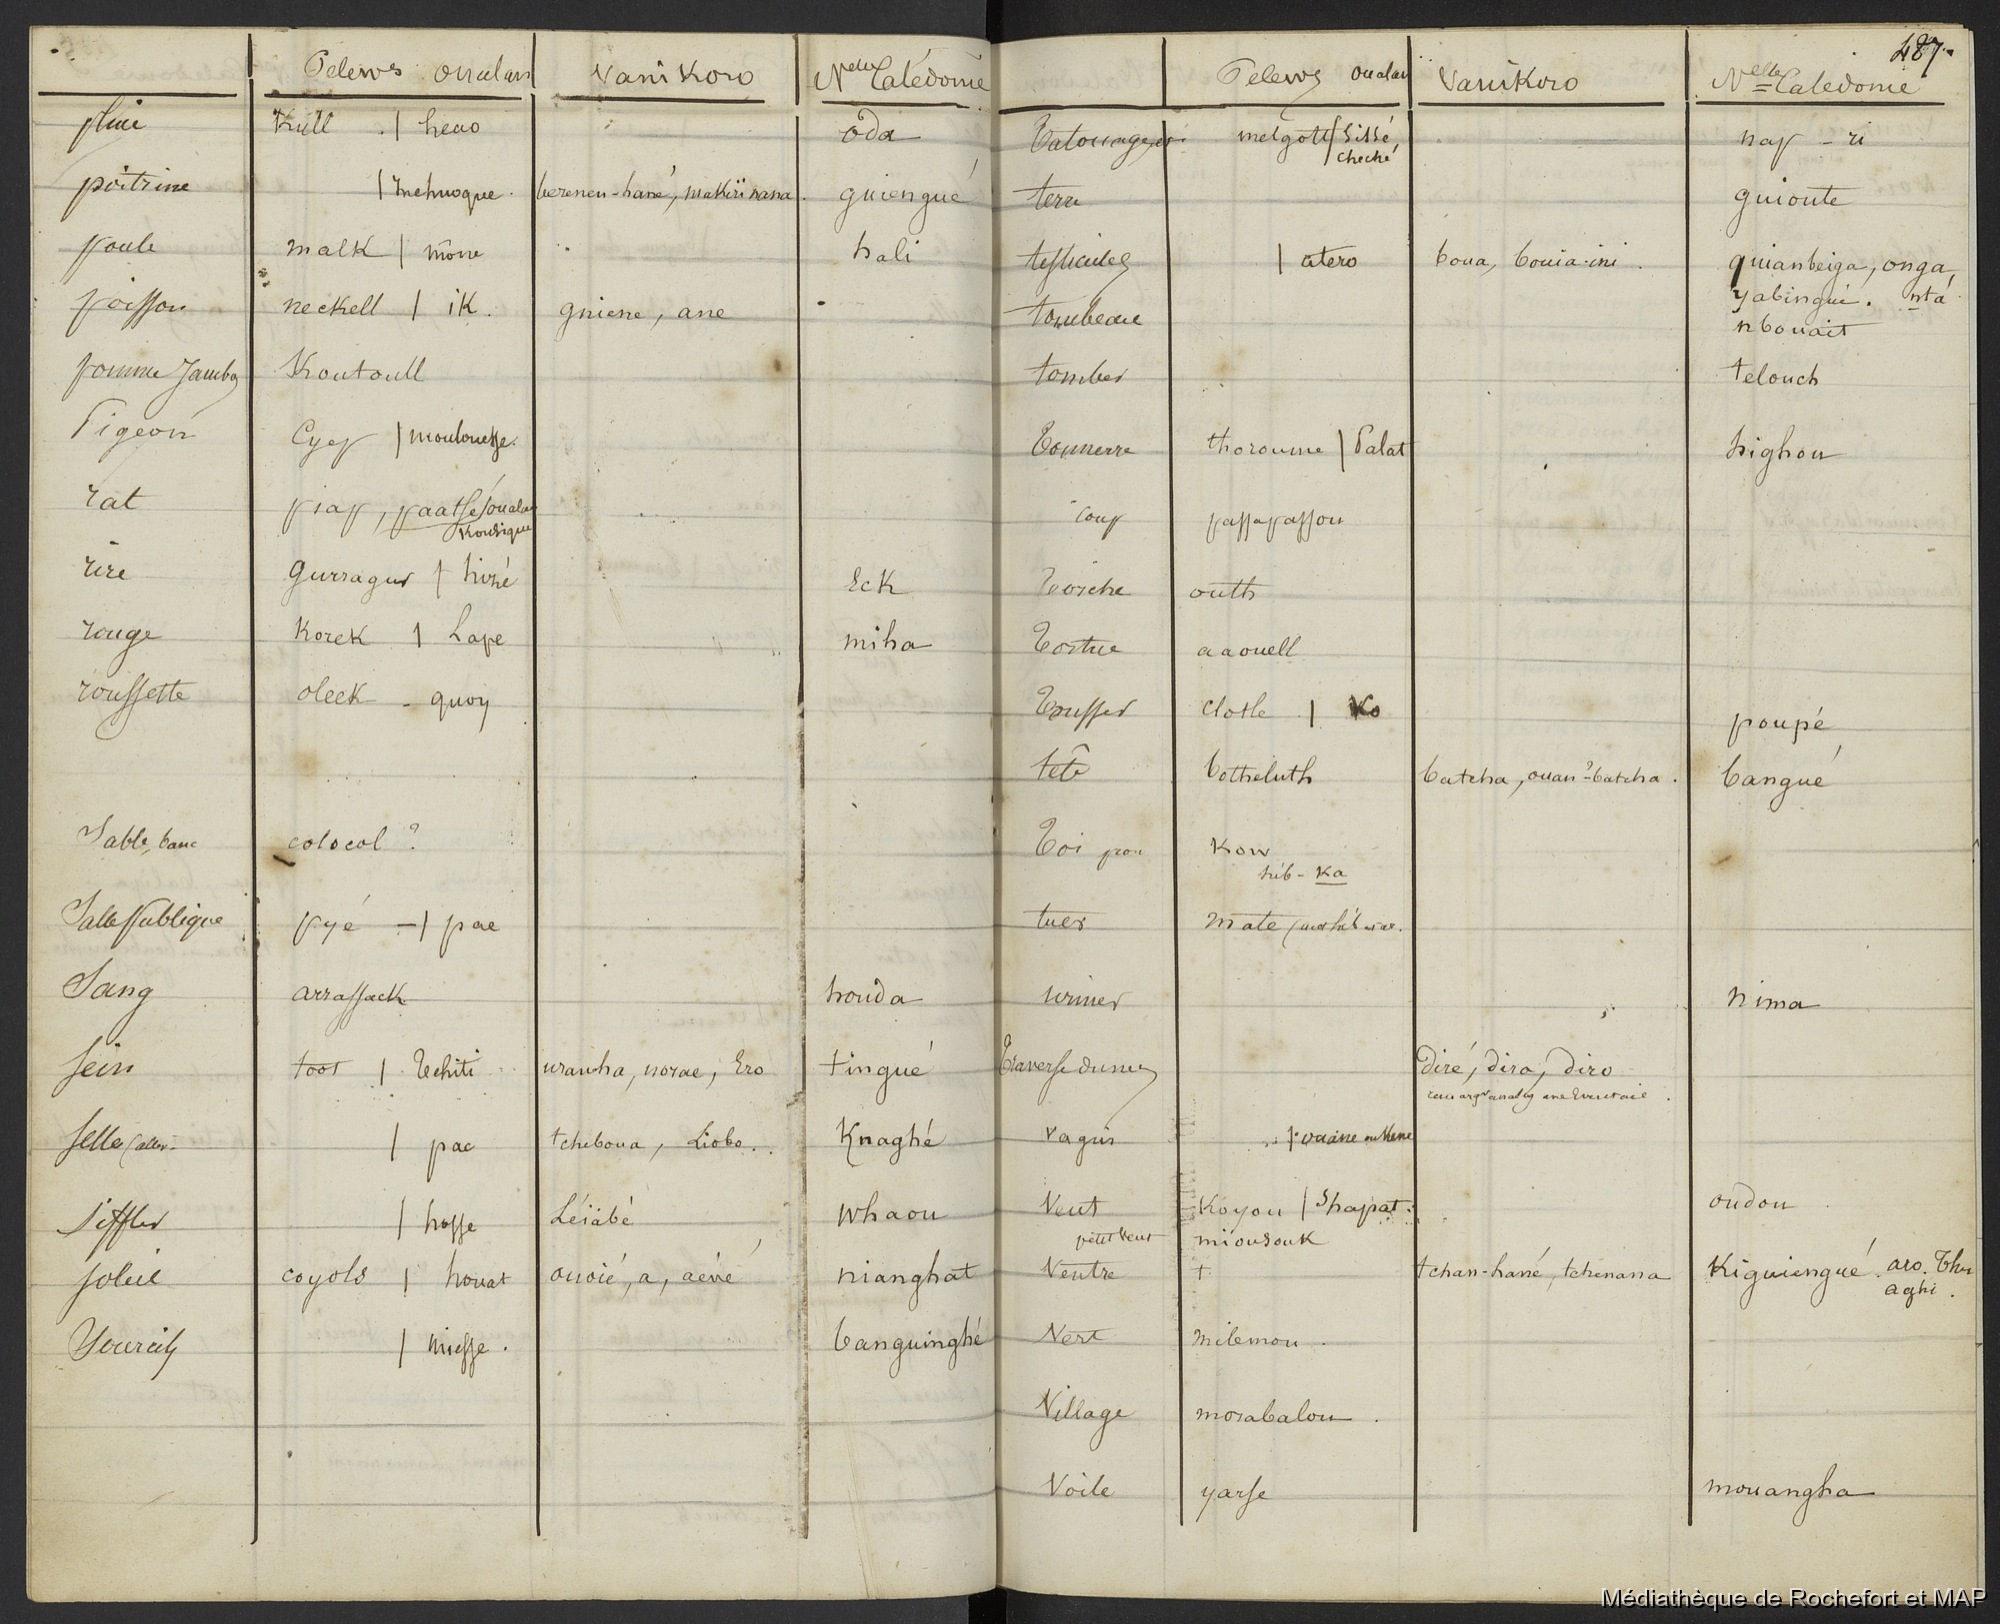 Pelews oualan Vanikoro Nelle Calédonie
pluie Kull | heao oda
poitrine berenen-hané, makiri nana guiengué
poule malk | mone hali
poisson neckell | ik. gniene, ane
pomme Jambos Koutoull
Pigeon Cyep | moulouesse.
rat piap, paatsé, oualan
Kousique
rire gurragur | hiré Eck
rouge Korek | hape miha
roussette oleek - quoy
Sable, banc colocol ?
Salle publique pyé - | pae
Sang arrassack houda
sein toot | Tchiti uranha, norae, Ero tingué
selle (aller | pae tcheboua, Liobo.. Knaghé
siffler | hosse Léiabé Whaou
soleil coyols | houat ouoié, a, aévé nianghat
Sourcils | miesse. banguinghé
487.
Pelews oualan Vanikoro Nelle Calédonie
Tatouages melgott | Sissé, nap - ri
cheché
terre guioute
testicules | atero boua, bouia-ini. guianbeiga, onga,
yabingué. nta
tombeau nbouait
tomber telouch
Tonnerre thoroume | Palat highou
coup passapassou
Torche outh
Tortue aaouell
Tousser clotle | Ko poupé
tête botheluth batcha, ouan?-batcha. bangué
Toi kow
hib - ka
tuer mate
uriner nima
Traverse du nez diré, dira, diro
vagin | ouaine ou Kene
Vent Koyou | Shapat. oudou
petit vent miousouk
Ventre + tchan-hané, tchenana Kiguiengué. aro.
aghi.
Vert milemou.
Village morabalou.
Voile yarse mouangha
Médiathèque de Rochefort et MAP